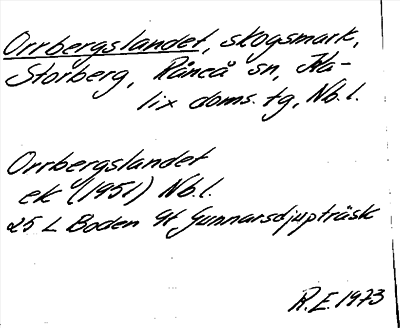 Orrbergslandet, skogsmark,
Storberg, Råneå sn, Ka-
lix doms. tg, Nb. l.
Orrbergslandet
ek (1951) Nb. l.
25 L Boden 9f Gunnarsdjupträsk
R.E. 1973